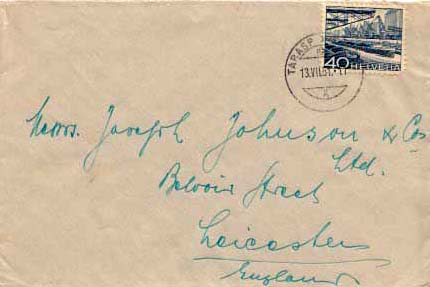 TARASP
13.VII.51.-11
40 HELVETIA
Messrs. Joseph Johnson & Cos
Ltd.
Belvoir Street
Leicester
England